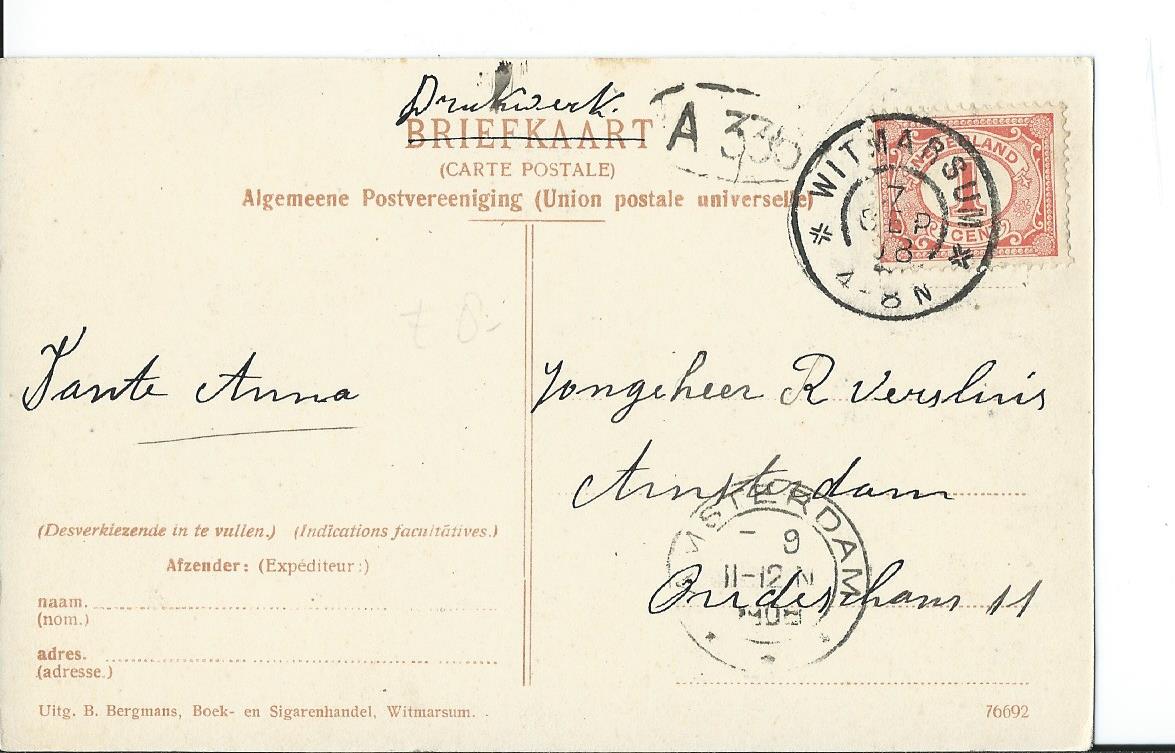 Drukwerk.
BRIEFKAART
(CARTE POSTALE)
Algemeene Postvereeniging (Union postale universelle)
A 335
NEDERLAND
1
CENT
WITMARSUM
7
SEP
08
4-8 N
Tante Anna
Jongeheer R Versluis
Amsterdam
Oudeschans 11
AMSTERDAM
- 9
11-12 N
1908
(Desverkiezende in te vullen.) (Indications facultatives.)
Afzender: (Expéditeur:)
naam.
(nom.)
adres.
(adresse.)
Uitg. B. Bergmans, Boek- en Sigarenhandel, Witmarsum.
76692